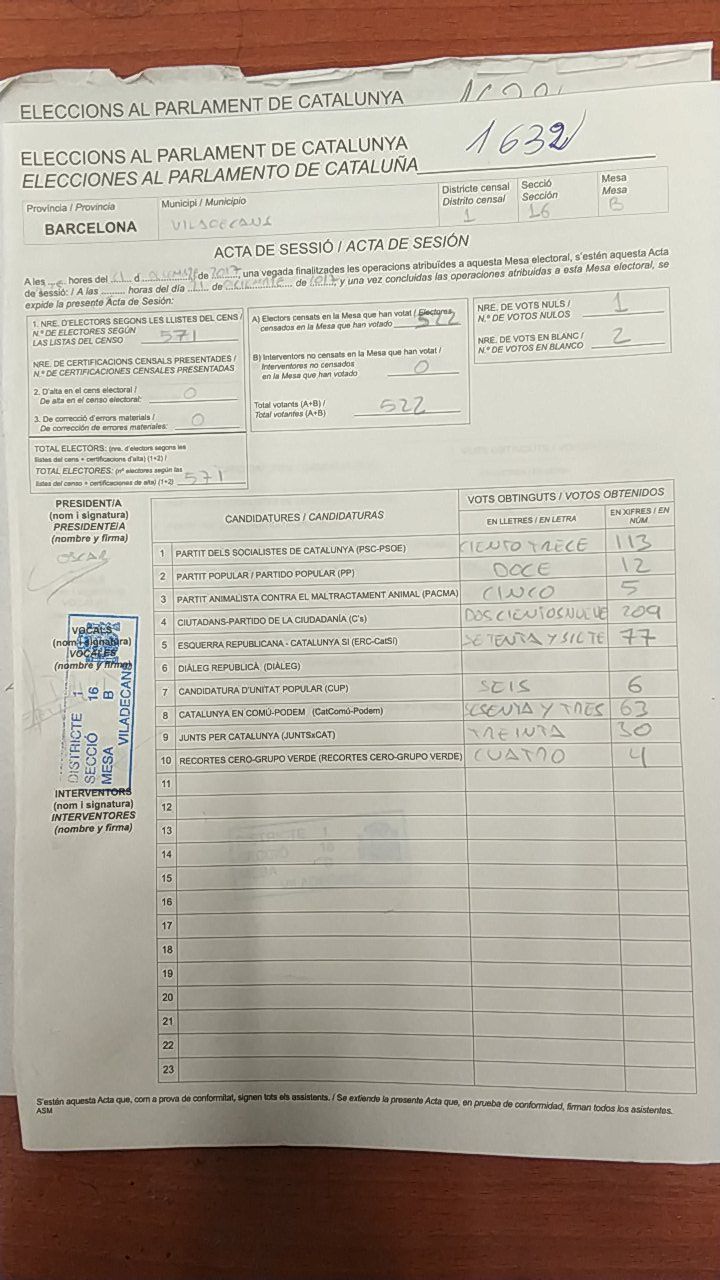 ELECCIONS AL PARLAMENT DE CATALUNYA
ELECCIONS AL PARLAMENT DE CATALUNYA
ELECCIONES AL PARLAMENTO DE CATALUÑA
1632
Província / Provincia
BARCELONA
Municipi / Municipio
VILADECANS
Districte censal
Distrito censal
1
Secció
Sección
16
Mesa
Mesa
B
ACTA DE SESSIÓ / ACTA DE SESIÓN
A les hores del 21 d DICIEMBRE de 2017, una vegada finalitzades les operacions atribuïdes a aquesta Mesa electoral, s'estén aquesta Acta
de sessió: / A las horas del día 21 de DICIEMBRE de 2017 y una vez concluidas las operaciones atribuidas a esta Mesa electoral, se
expide la presente Acta de Sesión:
1. NRE. D'ELECTORS SEGONS LES LLISTES DEL CENS /
N.º DE ELECTORES SEGÚN
LAS LISTAS DEL CENSO 571
NRE. DE CERTIFICACIONS CENSALS PRESENTADES /
N.º DE CERTIFICACIONES CENSALES PRESENTADAS
2. D'alta en el cens electoral /
De alta en el censo electoral: 0
3. De correcció d'errors materials /
De corrección de errores materiales: 0
TOTAL ELECTORS: (nre. d'electors segons les
llistes del cens + certificacions d'alta) (1+2) /
TOTAL ELECTORES: (nº electores según las
listas del censo + certificaciones de alta) (1+2) 571
A) Electors censats en la Mesa que han votat / Electores
censados en la Mesa que han votado 522
B) Interventors no censats en la Mesa que han votat /
Interventores no censados
en la Mesa que han votado 0
Total votants (A+B) /
Total votantes (A+B) 522
NRE. DE VOTS NULS /
N.º DE VOTOS NULOS 1
NRE. DE VOTS EN BLANC /
N.º DE VOTOS EN BLANCO 2
PRESIDENT/A
(nom i signatura)
PRESIDENTE/A
(nombre y firma)
OSCAR
VOCALS
(nom i signatura)
VOCALES
(nombre y firma)
DISTRICTE 1
SECCIÓ 16
MESA B
VILADECANS
INTERVENTORS
(nom i signatura)
INTERVENTORES
(nombre y firma)
CANDIDATURES / CANDIDATURAS
VOTS OBTINGUTS / VOTOS OBTENIDOS
EN LLETRES / EN LETRA
EN XIFRES / EN NÚM.
1 PARTIT DELS SOCIALISTES DE CATALUNYA (PSC-PSOE) CIENTO TRECE 113
2 PARTIT POPULAR / PARTIDO POPULAR (PP) DOCE 12
3 PARTIT ANIMALISTA CONTRA EL MALTRACTAMENT ANIMAL (PACMA) CINCO 5
4 CIUTADANS-PARTIDO DE LA CIUDADANÍA (C's) DOSCIENTOS NUEVE 209
5 ESQUERRA REPUBLICANA - CATALUNYA SI (ERC-CatSí) SETENTA Y SIETE 77
6 DIÀLEG REPUBLICÀ (DIÀLEG)
7 CANDIDATURA D'UNITAT POPULAR (CUP) SEIS 6
8 CATALUNYA EN COMÚ-PODEM (CatComú-Podem) SESENTA Y TRES 63
9 JUNTS PER CATALUNYA (JUNTSxCAT) TREINTA 30
10 RECORTES CERO-GRUPO VERDE (RECORTES CERO-GRUPO VERDE) CUATRO 4
11
12
13
14
15
16
17
18
19
20
21
22
23
S'estén aquesta Acta que, com a prova de conformitat, signen tots els assistents. / Se extiende la presente Acta que, en prueba de conformidad, firman todos los asistentes.
ASM